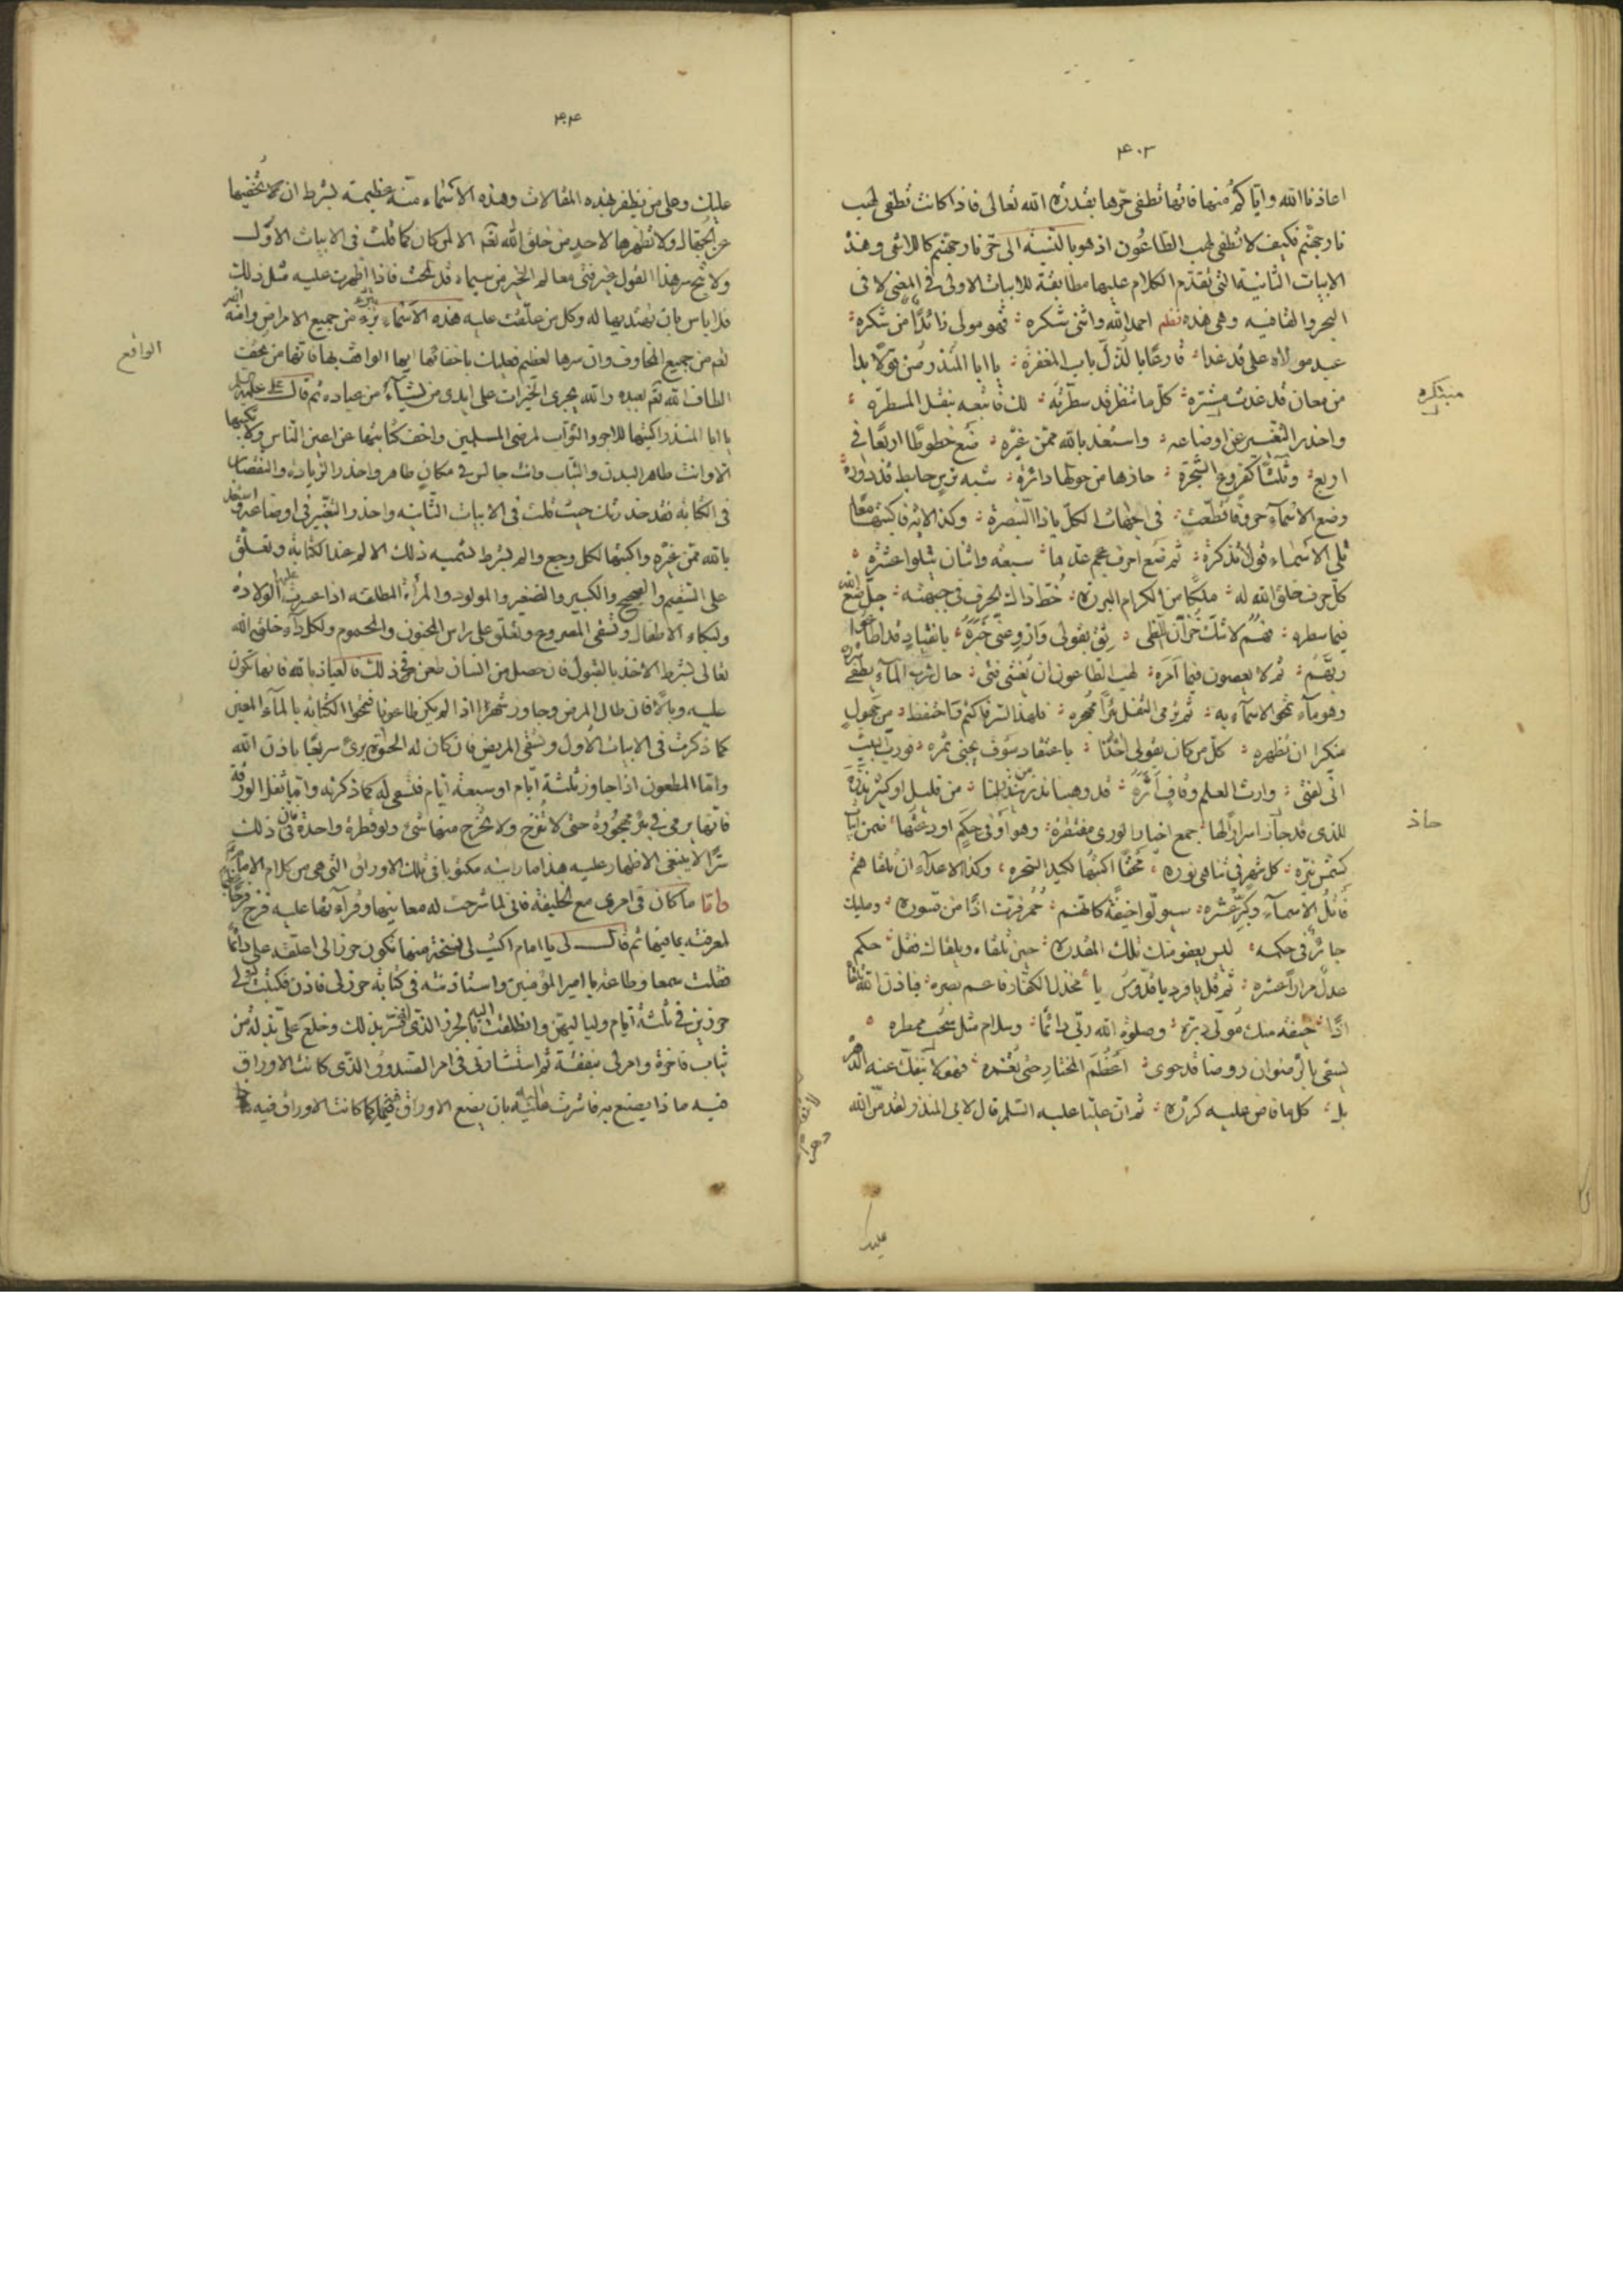 ۴۰۳
اعاذنا الله واياكم منها فانها تطفى حرها بقدرة الله تعالى فاذا كانت تطفى لهب
نار جهنم فكيف لا تطفى لهب الطاعون اذ هو بالنسبة الى حر نار جهنم كاللاشى وهذه
الابيات الثانية التى تقدم الكلام عليها مطابقة للابيات الاولى فى المعنى لا فى
البحر والقافيه وهى هذه نظم احمد الله واثنى شكره فهو مولى زائدا من شكره
عبد مولاه على قد غدا قارعا بالذل باب المغفرة يا ابا المنذر من
من معان قد غدت مبتكره كل ما تنظر قد سطرته لك فاتبعه بنقل المسطرة
واحذر التغيير عن اوضاعه واستعذ بالله ممن غيره ضع خطوطا اربعا فى
اربع وثلثا كفروع الشجرة حاذها من حولها دائرة شبه ترس حايط قد دوره
وضع الاسماء حروفا قطعت فى الجهات الكل يا ذا التبصرة وكذا الاية فاكتبها معا
تلى الاسماء قولا تذكرة ثم ضع احرف عجم عدها سبعة واثنان يتلوا عشره
كل حرف خلق الله له ملكا من الكرام البررة خط ذاك الحرف فى جبهته جل صنع الله
فيما سطره فهم لا شك خزان لظى ثق بقولى وارو عنى خبره بانقياد قد اطاعوا
ربهم ثم لا يعصون فيما امره لهب الطاعون ان يغشى فتى حال شرب الماء يطفى شرره
وهو ماء تمحو الاسماء به ثم رمى الثفل بئرا مقحره فلهذا السر فاكتم واحتفظ من جهول
منكرا ان تظهره كل من كان بقولى اخذا باعتقاد سوف يجنى ثمره فورب البيت
انى لفتى وارث العلم وقاف اثره قد وهبنا نذر من ينذر لنا من قليل او كثير نذره
للذى قد حاز اسرارا لها جمع اخيار الورى مفتقرة وهو اوفى حكم اودعتها فمن اياته
كشمس نيره كل شهر فى تناهى نوره مخفيا اكتبها لكيد السحره وكذا الاعداء ان تلقاهم
فاتل الاسماء وكرر عشره سيولوا خيفة كانهم حمر فرت اذا من قسورة ومليك
جائر فى حكمه ليس يعفو منك تلك المقدرة حين تلقاه ويلقاك فقل حكم
عدل مرارا عشره ثم قل يا فرد يا قدوس يا مخذل الكفار فاعم بصره فباذن الله تلقاه
اذا خيفة منك مولى دبره وصلوة الله ربى دائما وسلام مثل سحب ممطره
يسقى بالرضوان روضا قد حوى اعظم المختار حتى تغمره فهو لا ينفك عنه الدهر
بل كلما فاض عليه كرره ثم ان عليا عليه السلم قال لابى المنذر لقد من الله
مبتكره
حاذ
عليك
۴۰۴
عليك وعلى من يظفر بهذه المقالات وهذه الاسماء منة عظيمة بشرط ان لا تخفيها
عن الجهال ولا تظهرها لاحد من خلق الله تعم الا لمن كان كما قلت فى الابيات الاول
ولا تبح سر هذا القول غير فتى معالم الخير من سيماه قد لمحت فاذا ظهرت عليه مثل ذلك
فلا باس بان تهديها له وكل من علقت عليه هذه الاسماء برء من جميع الامراض وامنه الله
تعم من جميع المخاوف وان سرها لعظيم فعليك باخفائها ايها الواقف بها فانها من تحف
الطاف الله تعم بعبده والله يجرى الخيرات على ايدى من يشاء من عباده ثم قال على عليه السلم
يا ابا المنذر اكتبها للاجر والثواب لمرضى المسلمين واخف كتابتها عن اعين الناس ولا تكتبها
الا وانت طاهر البدن والثياب وانت جالس فى مكان طاهر واحذر الزيادة والنقصان
فى الكتابة فقد حذرتك حيث قلت فى الابيات الثانيه واحذر التغيير فى اوضاعه واستعذ
بالله ممن غيره واكتبها لكل وجع والم بشرط تسميه ذلك الالم عند الكتابة وتعلق
على السقيم والصحيح والكبير والصغير والمولود والمرأة المطلقة اذا عسرت عليها الولادة
ولبكاء الاطفال وتسقى المصروع وتعلق على راس المجنون والمحموم ولكل داء خلقه الله
تعالى بشرط الاخذ بالقبول فان حصل من انسان طعن فى ذلك فالعياذ بالله فانها تكون
عليه وبالا فان طال المرض وجاوز شهرا اذا لم يكن طاعونا فتمحوا الكتابة بالماء المعين
كما ذكرت فى الابيات الاول وتسقى المريض فان كان له الحيوة برئ سريعا باذن الله
واما المطعون اذا جاوز ثلثة ايام او سبعة ايام فتسقى له كما ذكرته واما ثفل الورقة
فانها يرمى فى بئر مهجورة حتى لا تنزح ولا يخرج منها شئ ولو قطرة واحدة فان فى ذلك
سرا لا ينبغى الاظهار عليه هذا ما رايته مكتوبا فى تلك الاوراق التى هى من كلام الامام
واما ما كان فى امرى مع الخليفة فانى لما شرحت له معانيها وقرأتها عليه فرح فرحا عظيما
لمعرفته بما فيها ثم قال لى يا امام اكتب لى نسخة منها تكون حرزا لى اعلقه على دائما
فقلت سمعا وطاعة يا امير المؤمنين واستاذنته فى كتابة حرز لى فاذن فكتبت له ولى
حرزين فى ثلثة ايام ولياليهن وانطلقت اليه بالحرز الذى له فسر بذلك وخلع على بذلة من
ثياب فاخرة وامر لى بنفقة ثم استشارنى فى امر الصندوق الذى كانت الاوراق
فيه ماذا يصنع به فاشرت عليه بان يضع الاوراق فيها كما كانت الاوراق فيه
الواقع